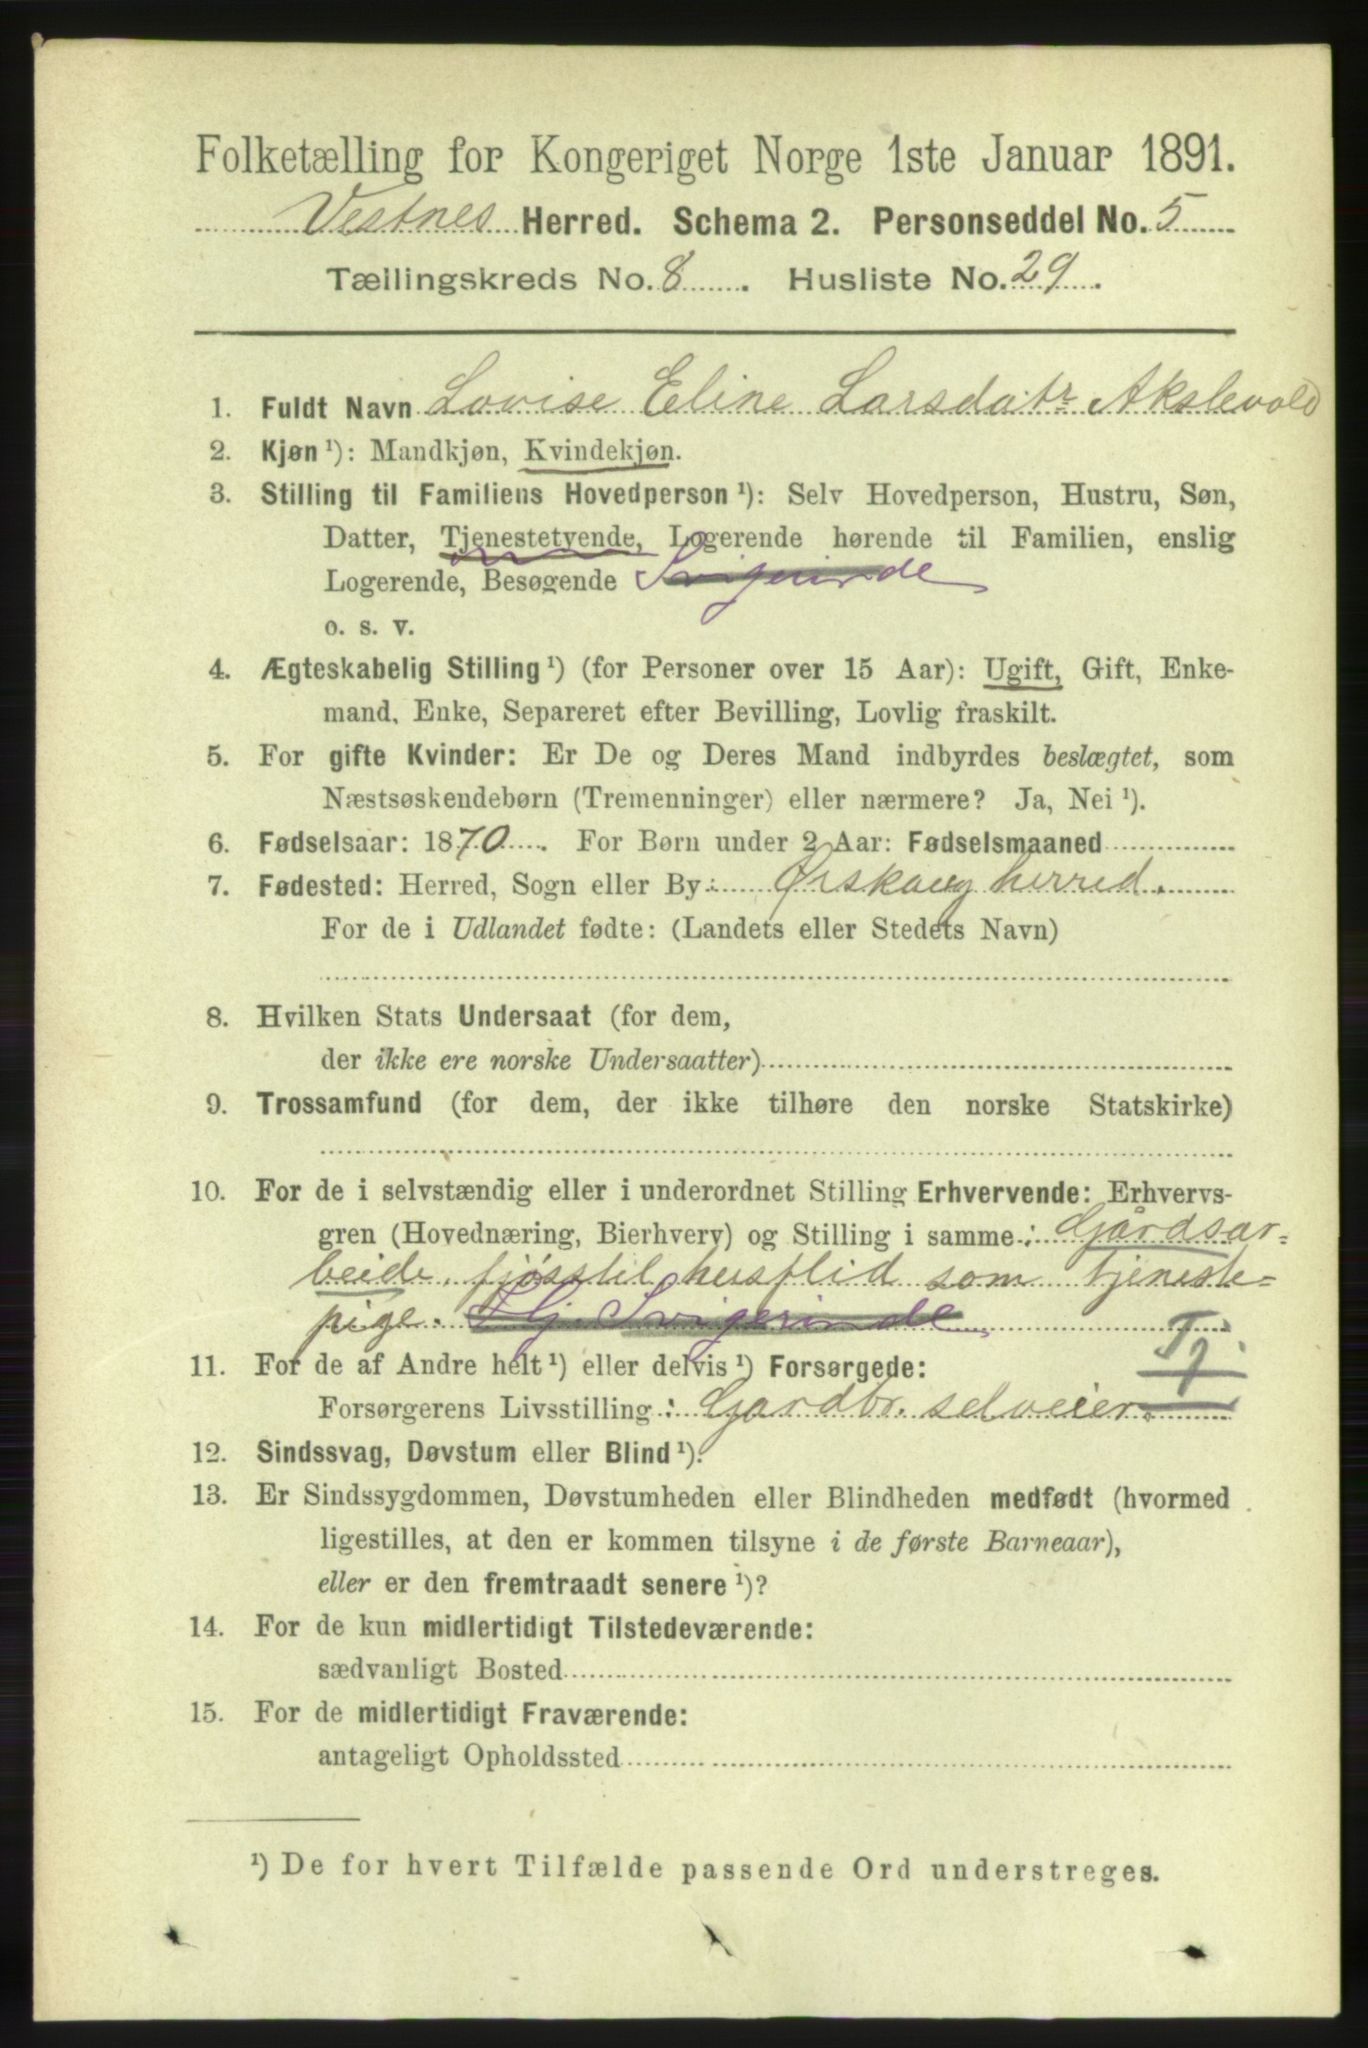 Folketælling for Kongeriget Norge 1ste Januar 1891.
Vestnes Herred. Schema 2. Personseddel No. 5
Tællingskreds No. 8. Husliste No. 29.
1. Fuldt Navn Lovise Eline Larsdatr Akslevold
2. Kjøn ¹): Mandkjøn, Kvindekjøn.
3. Stilling til Familiens Hovedperson ¹): Selv Hovedperson, Hustru, Søn,
Datter, Tjenestetyende, Logerende hørende til Familien, enslig
Logerende, Besøgende Svigerinde
o. s. v.
4. Ægteskabelig Stilling ¹) (for Personer over 15 Aar): Ugift, Gift, Enke-
mand, Enke, Separeret efter Bevilling, Lovlig fraskilt.
5. For gifte Kvinder: Er De og Deres Mand indbyrdes beslægtet, som
Næstsøskendebørn (Tremenninger) eller nærmere? Ja, Nei ¹).
6. Fødselsaar: 1870. For Børn under 2 Aar: Fødselsmaaned
7. Fødested: Herred, Sogn eller By: Ørskoug herred.
For de i Udlandet fødte: (Landets eller Stedets Navn)
8. Hvilken Stats Undersaat (for dem,
der ikke ere norske Undersaatter)
9. Trossamfund (for dem, der ikke tilhøre den norske Statskirke)
10. For de i selvstændig eller i underordnet Stilling Erhvervende: Erhvervs-
gren (Hovednæring, Bierhverv) og Stilling i samme: Gårdsar-
beide, fjøsstel husflid som tjeneste-
pige. Svigerinde
Tj.
11. For de af Andre helt ¹) eller delvis ¹) Forsørgede:
Forsørgerens Livsstilling: Gardbr. selveier.
12. Sindssvag, Døvstum eller Blind ¹).
13. Er Sindssygdommen, Døvstumheden eller Blindheden medfødt (hvormed
ligestilles, at den er kommen tilsyne i de første Barneaar),
eller er den fremtraadt senere ¹)?
14. For de kun midlertidigt Tilstedeværende:
sædvanligt Bosted
15. For de midlertidigt Fraværende:
antageligt Opholdssted
¹) De for hvert Tilfælde passende Ord understreges.